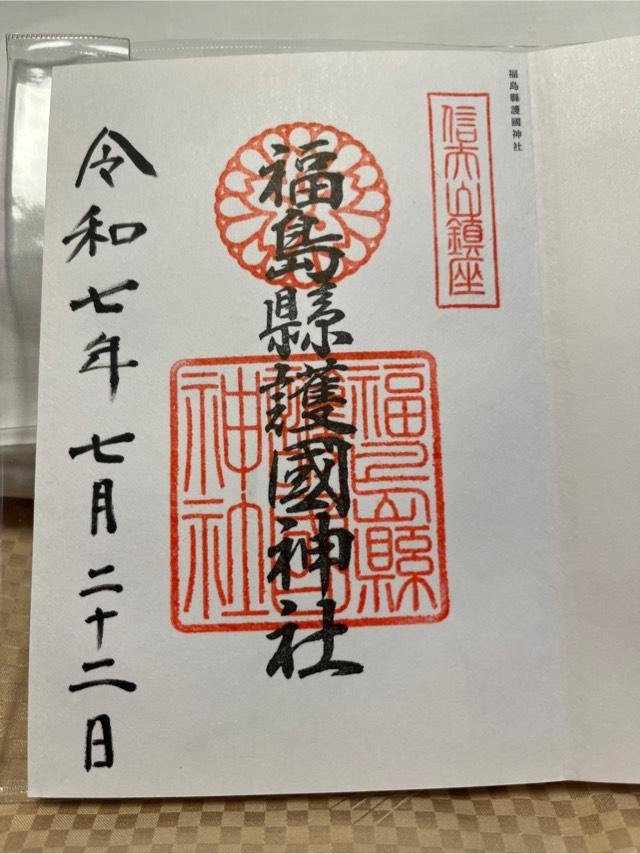 福島縣護國神社
信夫山鎮座
福島縣護國神社
福島縣護國神社
令和七年七月二十二日